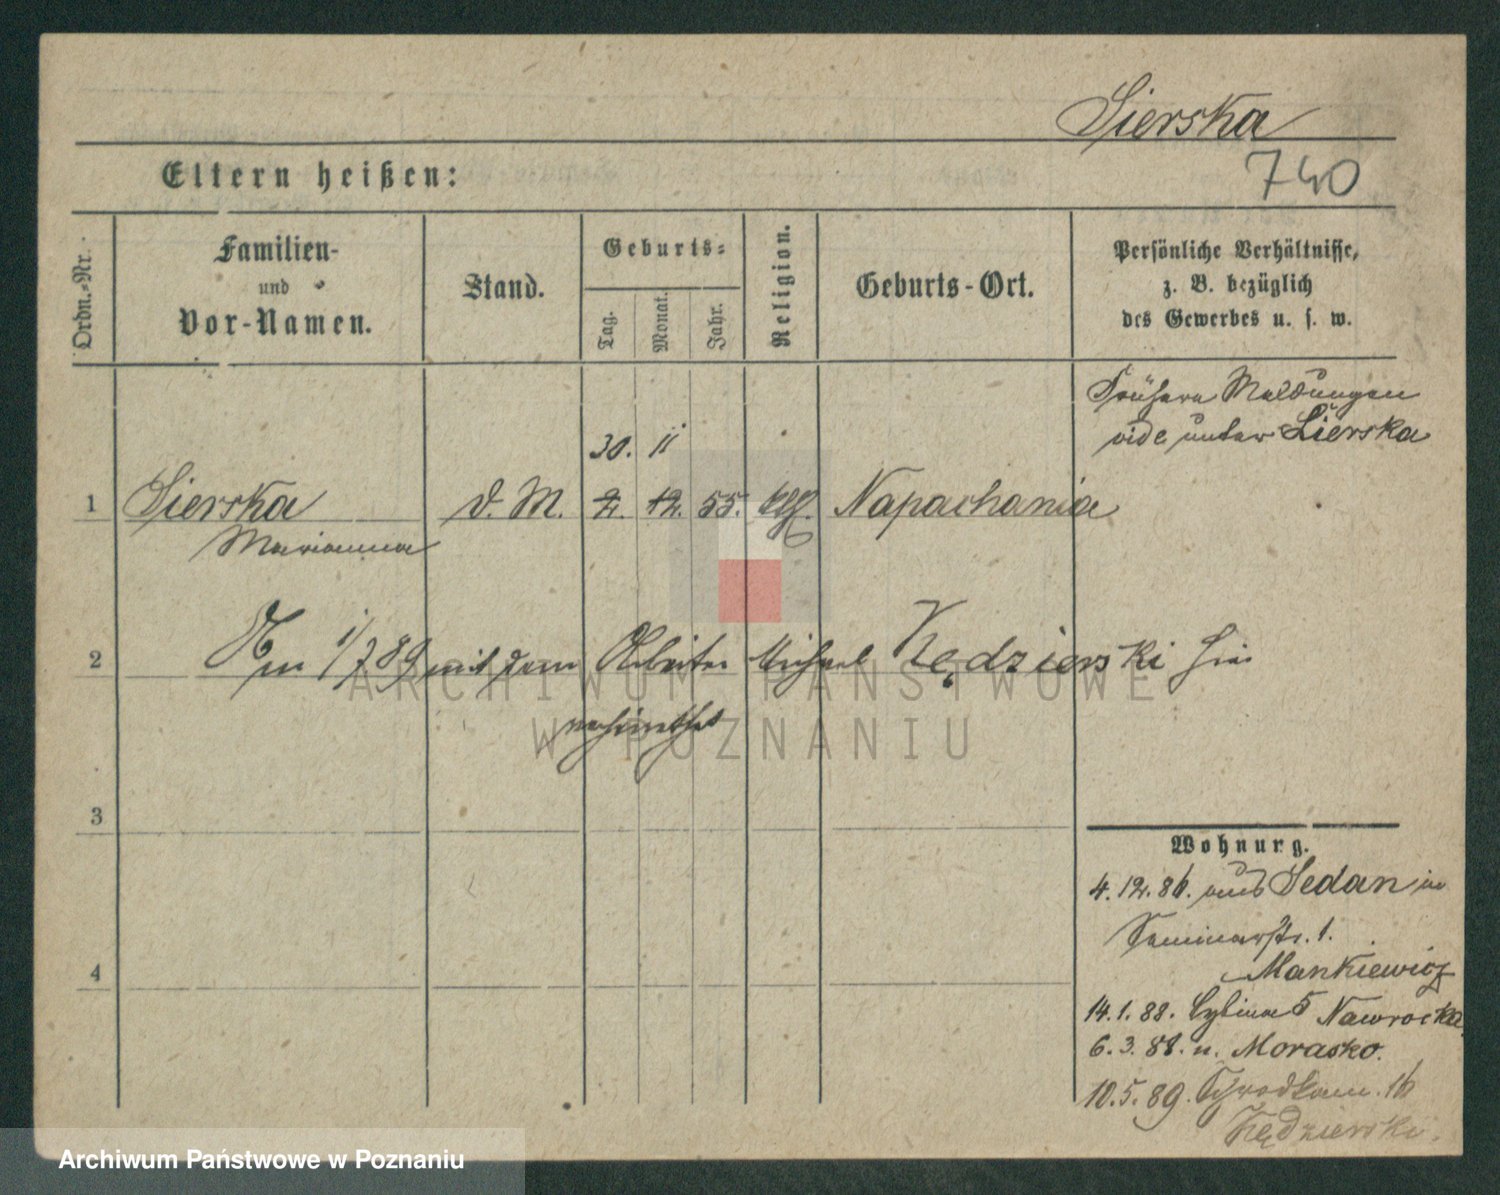 Sierska
740
Eltern heißen:
Ordn.-Nr.
Familien-
und
Vor-Namen.
Stand.
Geburts-
Tag.
Monat.
Jahr.
Religion.
Geburts-Ort.
Persönliche Verhältnisse,
z. B. bezüglich
des Gewerbes u. s. w.
Frühere Meldungen
vide unter Lierska
30. 11
1 Sierska d. M. 2. 12. 55. kg. Napachania
Marianna
2 Am 1/7 89 mit dem Arbeiter Michael Kędzierski hier
verheirathet
ARCHIWUM PAŃSTWOWE
W POZNANIU
3
4
Wohnung.
4. 12. 86. aus Sedan in
Seminarstr. 1.
Mankiewicz
14. 1. 88. Cybina 5 Nawrocka
6. 3. 88. n. Morasko.
10. 5. 89. 16
Kędzierski.
Archiwum Państwowe w Poznaniu